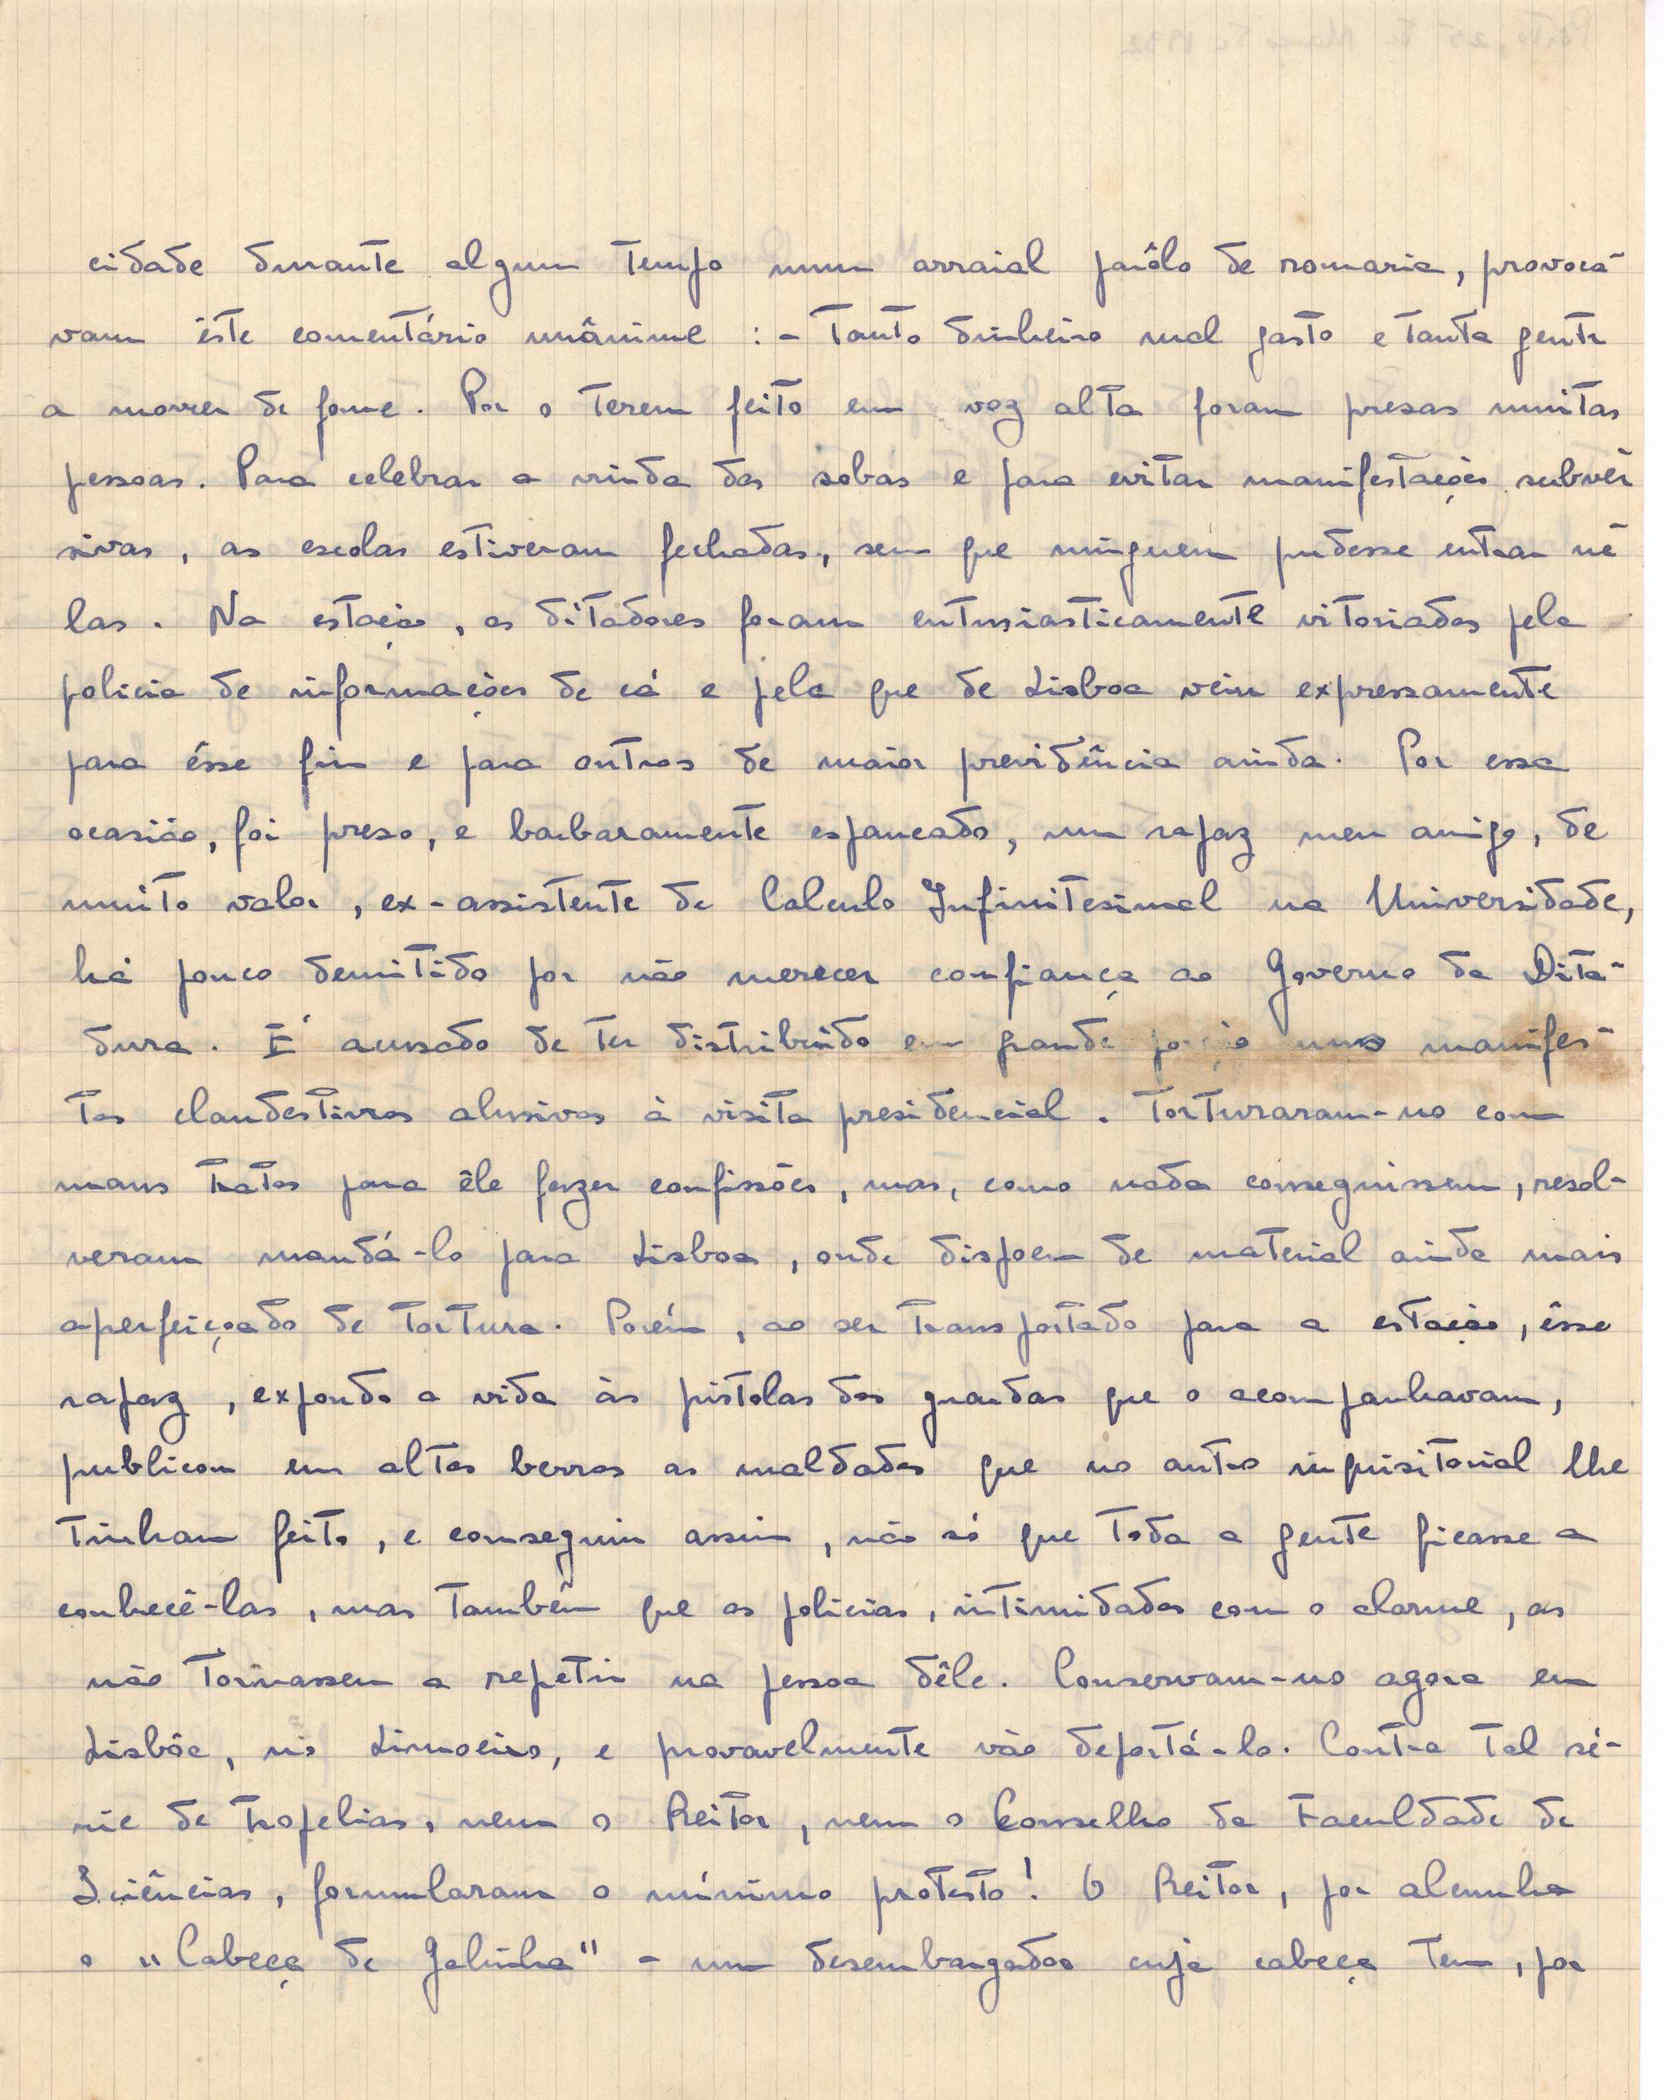 cidade durante algum tempo num arraial parôlo de romaria, provocá-
vam êste comentário unânime : - Tanto dinheiro mal gasto e tanta gente
a morrer de fome. Por o terem feito em voz alta foram presas muitas
pessoas. Para celebrar a vinda dos sobas e para evitar manifestações subver-
sivas, as escolas estiveram fechadas, sem que ninguem pudesse entrar ne-
las. Na estação, os ditadores foram entusiasticamente vitoriados pela
policia de informações de cá e pela que de Lisboa veiu expressamente
para êsse fim e para outros de maior previdência ainda. Por essa
ocasião, foi preso, e barbaramente espancado, um rapaz meu amigo, de
muito valor, ex-assistente de Calculo Infinitesimal na Universidade,
há pouco demitido por não merecer confiança ao Governo da Dita-
dura. É acusado de ter distribuido em grande uns manifes-
tos clandestinos alusivos à visita presidencial. Torturaram-no com
maus tratos para êle fazer confissões, mas, como nada conseguissem, resol-
veram mandá-lo para Lisboa, onde dispoem de material ainda mais
aperfeiçoado de tortura. Porém, ao ser transportado para a estação, êsse
rapaz, expondo a vida às pistolas dos guardas que o acompanhavam,
publicou em altos berros as maldades que no antro inquisitorial lhe
tinham feito, e conseguiu assim, não só que toda a gente ficasse a
conhecê-las, mas tambem que os policias, intimidados com o alarme, as
não tornassem a repetir na pessoa dêle. Conservam-no agora em
Lisbôa, no Limoeiro, e provavelmente vão deportá-lo. Contra tal sé-
rie de tropelias, nem o Reitor, nem o Conselho da Faculdade de
Sciências, formularam o mínimo protesto! O Reitor, por alcunha
o "Cabeça de Galinha" - um desembargador cuja cabeça tem, por